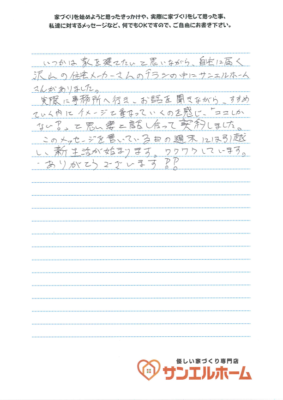 家づくりを始めようと思ったきっかけや、実際に家づくりをして思った事、
私達に対するメッセージなど、何でもOKですので、ご自由にお書き下さい。
いつかは家を建てたいと思いながら、自宅に届く
沢山の住宅メーカーさんのチラシの中にサンエルホーム
さんがありました。
実際に事務所へ行き、お話を聞きながら、すすめ
ていく内にイメージと重なっていくのを感じ、"ココしか
ない?"と思い妻と話し合って契約しました。
このメッセージを書いている日の週末には引越
し、新生活が始まります。ワクワクしています。
ありがとうございます!!
優しい家づくり専門店
サンエルホーム